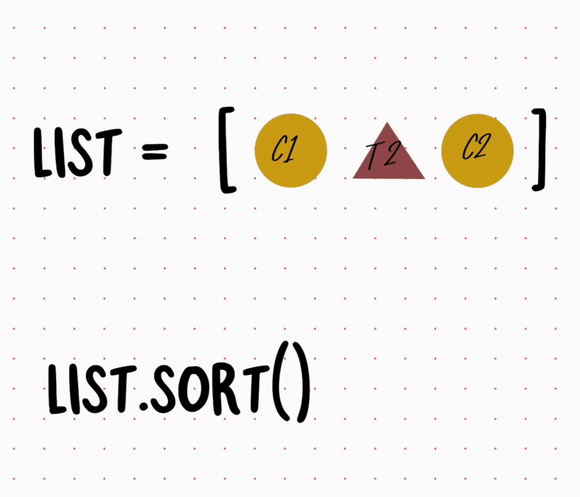 LIST = [ C1 T2 C2 ]
LIST.SORT()